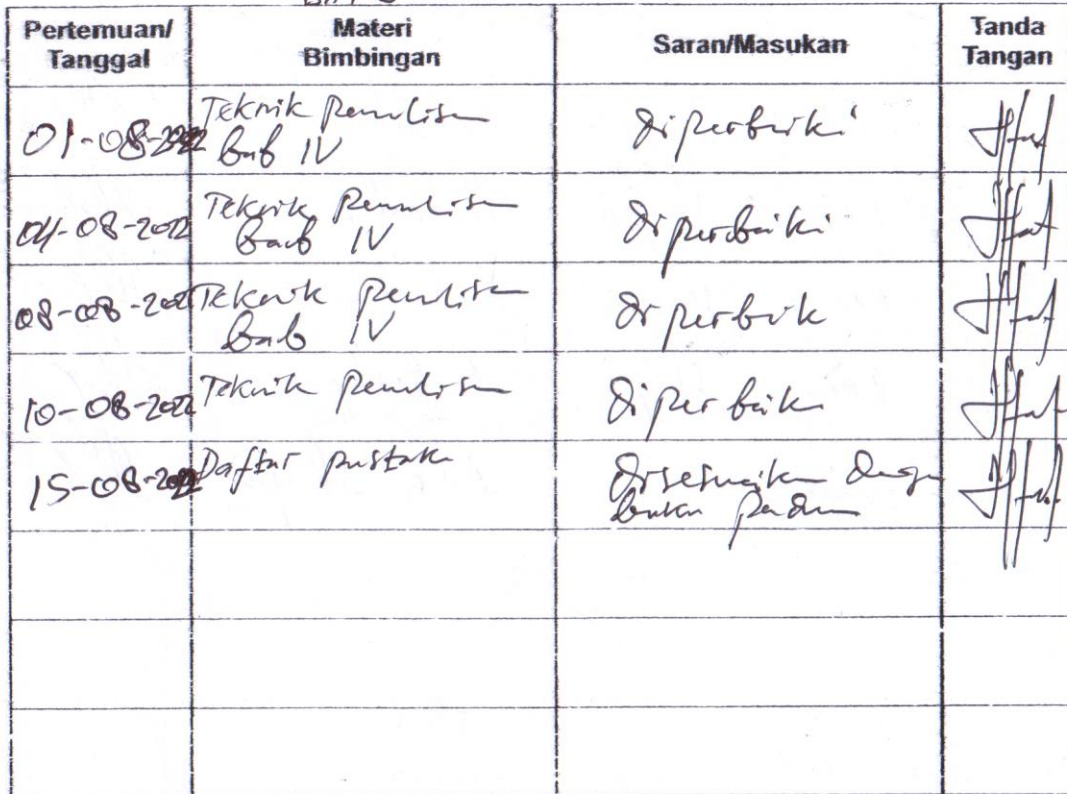 Pertemuan/ Tanggal
Materi Bimbingan
Saran/Masukan
Tanda Tangan
01-08-2022
Teknik Penulisan
bab IV
Diperbaiki
04-08-2022
Teknik Penulisan
bab IV
Diperbaiki
08-08-2022
Teknik Penulisan
bab IV
Diperbaiki
10-08-2022
Teknik Penulisan
Diperbaiki
15-08-2022
Daftar pustaka
Disesuaikan dengan
buku Paduan